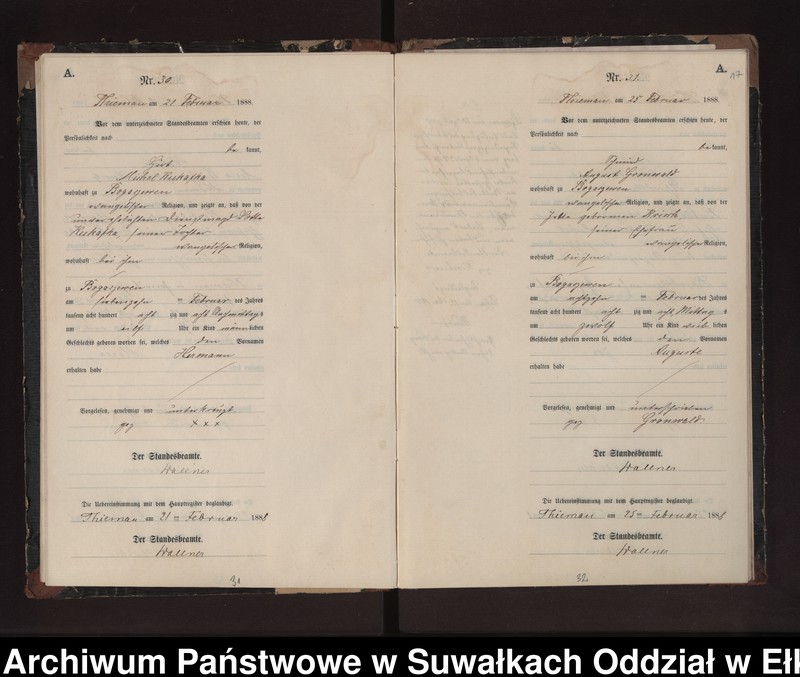 A.
Nr. 30.
am 21 Februar 1888.
Vor dem unterzeichneten Standesbeamten erschien heute, der
Persönlichkeit nach
be kannt,
Michel
wohnhaft zu Bogazewen
evangelischer Religion, und zeigte an, daß von der
Dienstmagd
seiner Tochter
evangelischer Religion,
wohnhaft bei ihm
zu Bogazewen
am siebenzehn ten Februar des Jahres
tausend acht hundert acht zig und acht Vormittags
um Uhr ein Kind männlichen
Geschlechts geboren worden sei, welches den Vornamen
Hermann
erhalten habe
Vorgelesen, genehmigt und unterkreuzt
gez x x x
Der Standesbeamte.
Wallner
Die Uebereinstimmung mit dem Hauptregister beglaubigt.
Thiemau am 21 ten Februar 1888
Der Standesbeamte.
Wallner
31
A.
47
Nr. 31.
am 25 Februar 1888.
Vor dem unterzeichneten Standesbeamten erschien heute, der
Persönlichkeit nach
be kannt,
August Gronwald
wohnhaft zu Bogazewen
evangelischer Religion, und zeigte an, daß von der
geborenen
seiner Ehefrau
evangelischer Religion,
wohnhaft bei ihm
zu Bogazewen
am achtzehn ten Februar des Jahres
tausend acht hundert acht zig und acht Mittag s
um zwölf Uhr ein Kind weib lichen
Geschlechts geboren worden sei, welches den Vornamen
Auguste
erhalten habe
Vorgelesen, genehmigt und unterschrieben
gez Gronwald
Der Standesbeamte.
Wallner
Die Uebereinstimmung mit dem Hauptregister beglaubigt.
Thiemau am 25 ten Februar 1888
Der Standesbeamte.
Wallner
32.
Archiwum Państwowe w Suwałkach Oddział w Ełk